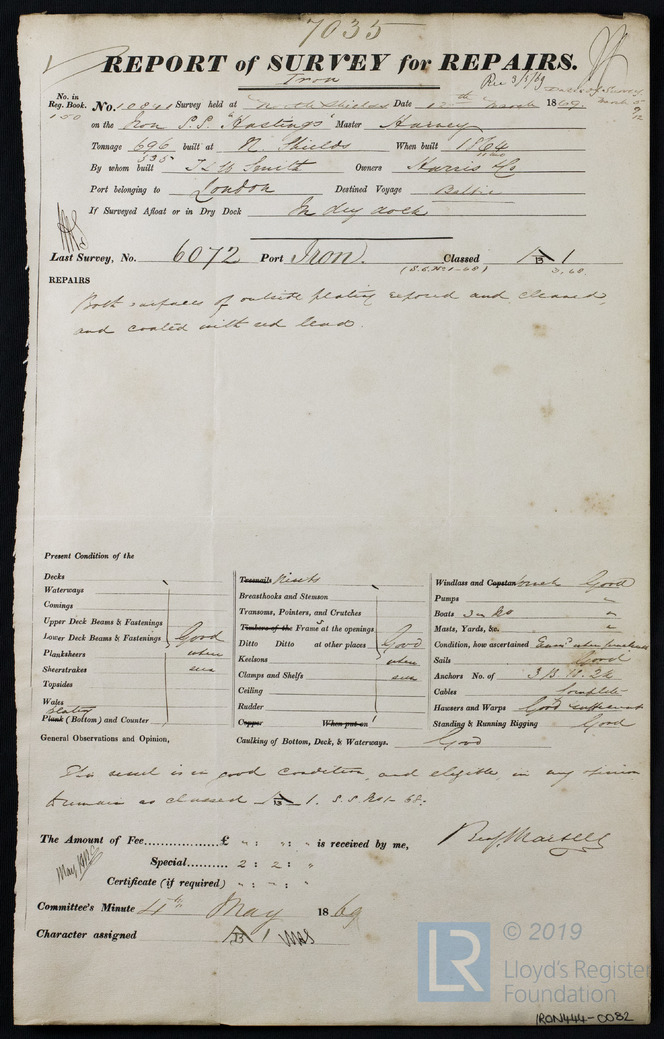 7035
REPORT of SURVEY for REPAIRS.
Iron
Rec 3/5/69
No. in Reg. Book.
150
No. 10841 Survey held at North Shields Date 12th March 1869
on the Iron S.S. "Hastings" Master Harvey
Tonnage 696 built at N. Shields When built 1864
535
By whom built T & W Smith Owners Harris & Co
Port belonging to London Destined Voyage Baltic
If Surveyed Afloat or in Dry Dock In dry dock
Last Survey, No. 6072 Port Iron. Classed A 1
(S.S. No 1-68) 3,68
REPAIRS
Both surfaces of outside plating exposed and cleaned,
and coated with red lead.
Present Condition of the
Decks
Waterways
Comings
Upper Deck Beams & Fastenings
Lower Deck Beams & Fastenings Good
Planksheers where
Sheerstrakes seen
Topsides
Wales
Plating
Plank (Bottom) and Counter
Treenails Rivets
Breasthooks and Stemson
Transoms, Pointers, and Crutches
Timbers of the Frames at the openings
Ditto Ditto at other places Good
Keelsons where
Clamps and Shelfs seen
Ceiling
Rudder
Copper When put on
Windlass and Capstan winch Good
Pumps "
Boats 3 in No "
Masts, Yards, &c. "
Condition, how ascertained
Sails Good
Anchors No. of 3 B. 1 S. 2 K
Cables Complete
Hawsers and Warps Good sufficient
Standing & Running Rigging Good
General Observations and Opinion,
Caulking of Bottom, Deck, & Waterways. Good
This vessel is in good condition, and eligible, in my opinion
to remain as classed A 1. S.S. No 1-68.
The Amount of Fee.................£ " : " : " is received by me,
Special.......... 2 : 2 : "
Certificate (if required) " : " : "
Benj. Martell
Committee's Minute 4th May 1869
Character assigned A 1
LR © 2019
Lloyd's Register
Foundation
IRON444-0082